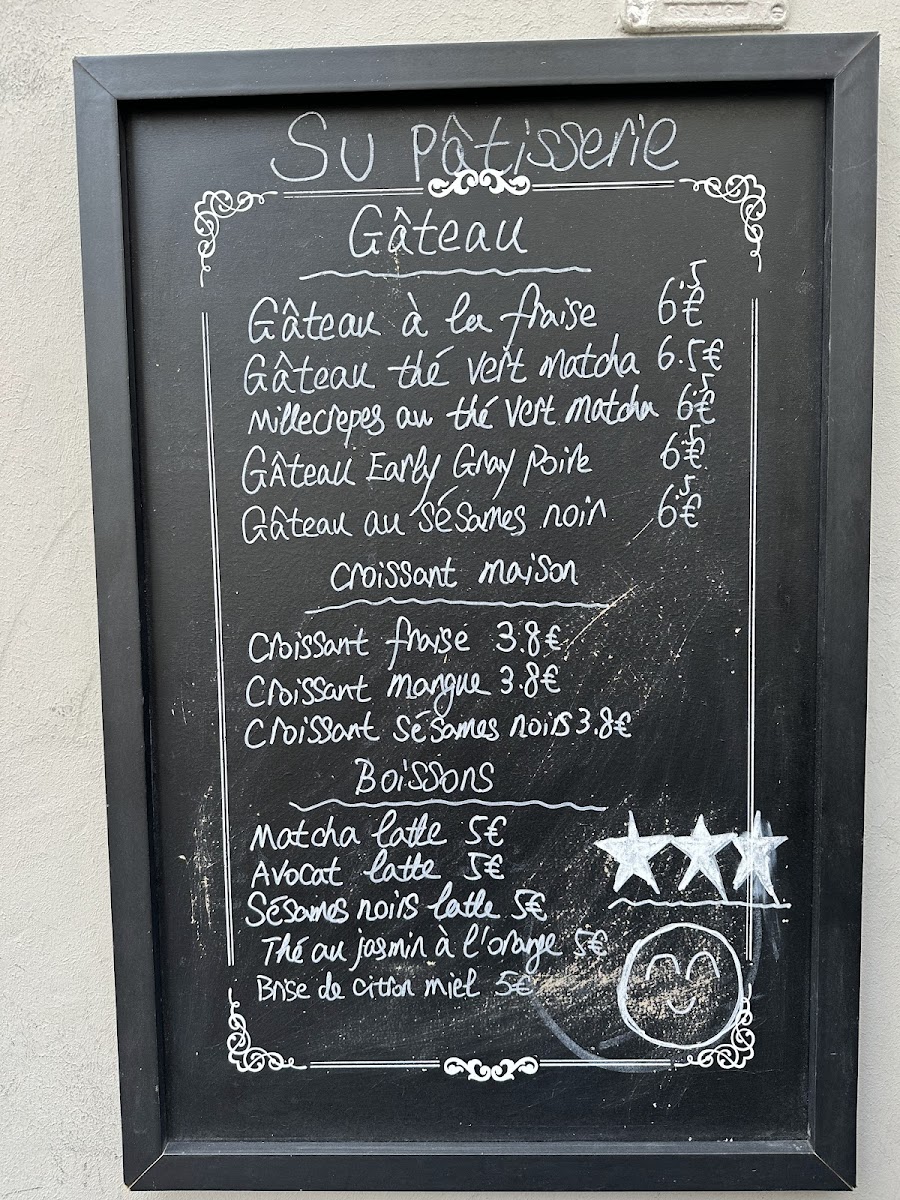 Su pâtisserie
Gâteau
Gâteau à la fraise 6.5€
Gâteau thé vert matcha 6.5€
Millecrepes au thé vert matcha 6.5€
Gâteau Early Gray Poire 6.5€
Gâteau au sésames noir 6.5€
Croissant maison
Croissant fraise 3.8€
Croissant mangue 3.8€
Croissant sésames noirs 3.8€
Boissons
Matcha latte 5€
Avocat latte 5€
Sésames noirs latte 5€
Thé au jasmin à l'orange 5€
Brise de citron miel 5€